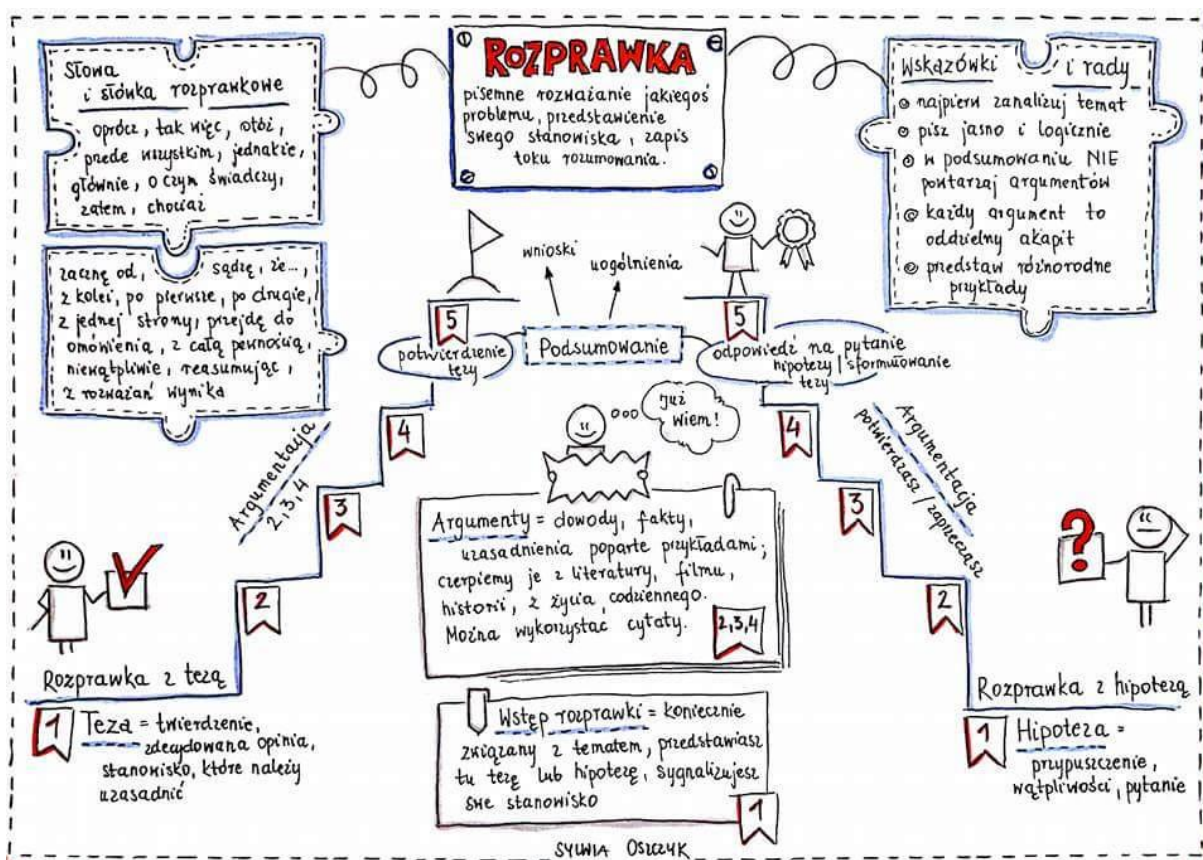 Słowa
i słówka rozprawkowe
oprócz, tak więc, otóż,
przede wszystkim, jednakże,
głównie, o czym świadczy,
zatem, chociaż
zacznę od, sądzę, że...,
z kolei, po pierwsze, po drugie,
z jednej strony, przejdę do
omówienia, z całą pewnością,
niewątpliwie, reasumując,
z rozważań wynika
ROZPRAWKA
pisemne rozważanie jakiegoś
problemu, przedstawienie
swego stanowiska, zapis
toku rozumowania.
Wskazówki i rady
najpierw zanalizuj temat
pisz jasno i logicznie
w podsumowaniu NIE
powtarzaj argumentów
każdy argument to
oddzielny akapit
przedstaw różnorodne
przykłady
wnioski
uogólnienia
5
5
potwierdzenie
tezy
Podsumowanie
odpowiedź na pytanie
hipotezy / sformułowanie
tezy
Już
wiem!
4
4
Argumentacja
2, 3, 4
Argumentacja
potwierdzasz / zaprzeczasz
3
3
Argumenty = dowody, fakty,
uzasadnienia poparte przykładami;
czerpiemy je z literatury, filmu,
historii, z życia codziennego.
Można wykorzystać cytaty.
2,3,4
?
2
2
Rozprawka z tezą
1
Teza = twierdzenie,
zdecydowana opinia,
stanowisko, które należy
uzasadnić
Wstęp rozprawki = koniecznie
związany z tematem, przedstawiasz
tu tezę lub hipotezę, sygnalizujesz
swe stanowisko
1
Rozprawka z hipotezą
1
Hipoteza =
przypuszczenie,
wątpliwości, pytanie
SYLWIA OSZCZYK